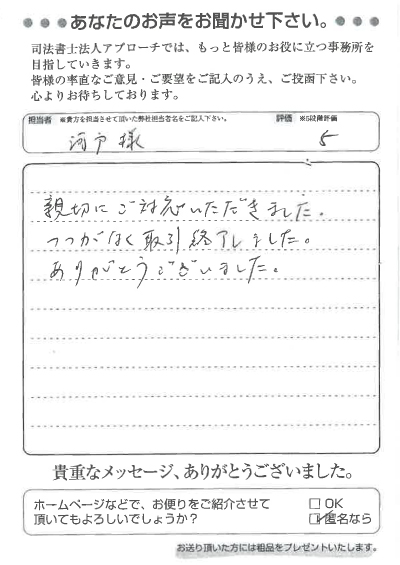 あなたのお声をお聞かせ下さい。
司法書士法人アプローチでは、もっと皆様のお役に立つ事務所を
目指していきます。
皆様の率直なご意見・ご要望をご記入のうえ、ご投函下さい。
心よりお待ちしております。
担当者 ※貴方を担当させて頂いた弊社担当者名をご記入下さい。 評価 ※5段階評価
河戸様 5
親切にご対応いただきました。
つつがなく取引終了しました。
ありがとうございました。
貴重なメッセージ、ありがとうございました。
ホームページなどで、お便りをご紹介させて □ OK
頂いてもよろしいでしょうか? ☑ 匿名なら
お送り頂いた方には粗品をプレゼントいたします。